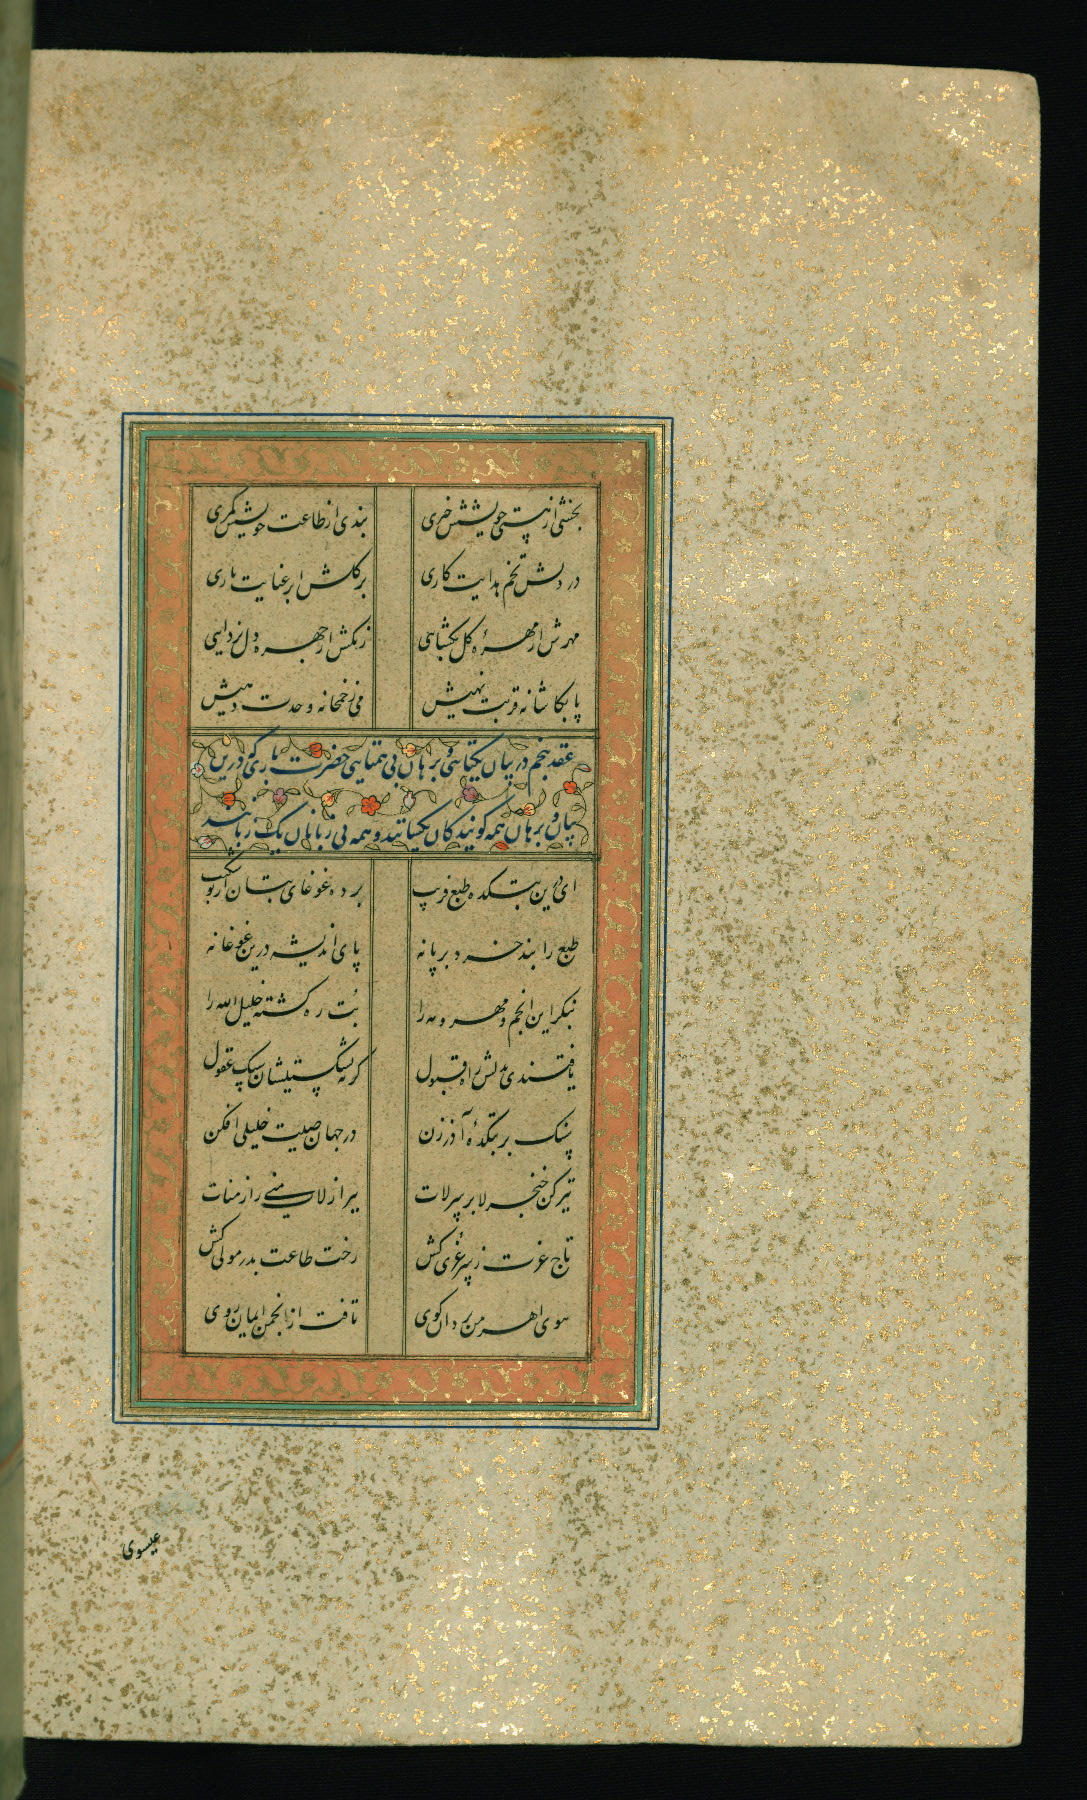 بخشی از هستی خویشش خبری بندی از طاعت خویشش کمری
در دلش تخم هدایت کاری بر گلش ابر عنایت باری
مهرش از مهره گل بگشایی زنگش از چهره دل بزدایی
پا بکاشانه قربت نهیش می ز خمخانه وحدت دهیش
عقد پنجم در بیان یکتائی و برهان بی همتایی حضرت باری که درین
بیان و برهان همه گویندگان یکتایند و همه بی زبانان یک زبانند
ای درین بتکده طبع فریب برده غوغای بتان از تو شکیب
طبع را بند خرد بر پا نه پای اندیشه درین غوغا نه
بنگر این انجم و مهر و مه را بت ره گشته خلیل الله را
یافتندی بدلش راه قبول گر نه بشکستیشان سنگ عقول
سنگ بر بتکده آذر زن در جهان صیت خلیلی افکن
تیز کن خنجر لا بر سر لات ببر از لات منی راز منات
تاج عزت ز سر عزی کش رخت طاعت بدر مولی کش
سوی اهرمن یزدان گوی تافت از انجمن ایمان روی
عیسوی